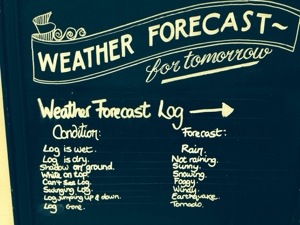 WEATHER FORECAST~
for tomorrow
Weather Forecast Log →
Condition: Forecast:
Log is wet. Rain.
Log is dry. Not raining.
Shadow on ground. Sunny.
White on top. Snowing.
Can't see log. Foggy.
Swinging Log. Windy.
Log jumping up & down. Earthquake.
Log Gone. Tornado.